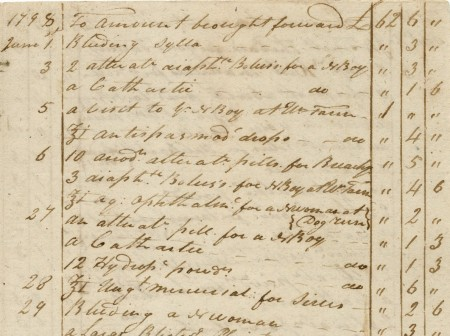 1798 To Amount brought forward £ 62 6 "
June 1 Bleeding Sylla " 3 "
3 2 alterat: diaph: Bolus's for a N Boy " 3 "
a Cathartic do " 1 6
5 a visit to yr N Boy at Farm 1 " "
ʒi antispasmod: drops do " 4 "
6 10 anod: alterat: pills for " 5 "
3 diaph: Bolus's for N Boy at Farm " 4 6
aq: ophthalm: for a N woman at " 2 "
{Dog run}
27 an alterat: pill for a N Boy " 1 3
a Cathartic " 1 3
12 Hydrops: powders do " 6 "
28 Ungt mercurial: for " 2 6
29 Bleeding a N Woman " 3 "
a Large Blister